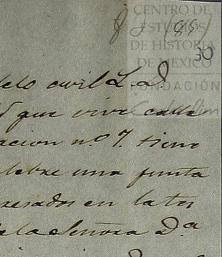 CENTRO DE
ESTUDIOS
DE HISTORIA
DE MEXICO
FUNDACIÓN
39
delo civil L. D
que vive calle
acion nº 7. tiene
lebre una junta
resados en la tes
de la Señora Dª